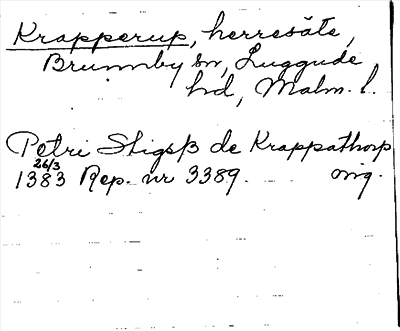 Krapperup, herresäte,
Brunnby sn, Luggude
hd, Malm. l.
Petri Stigsß de Krappathorp
26/3
1383 Rep. nr 3389. orig.